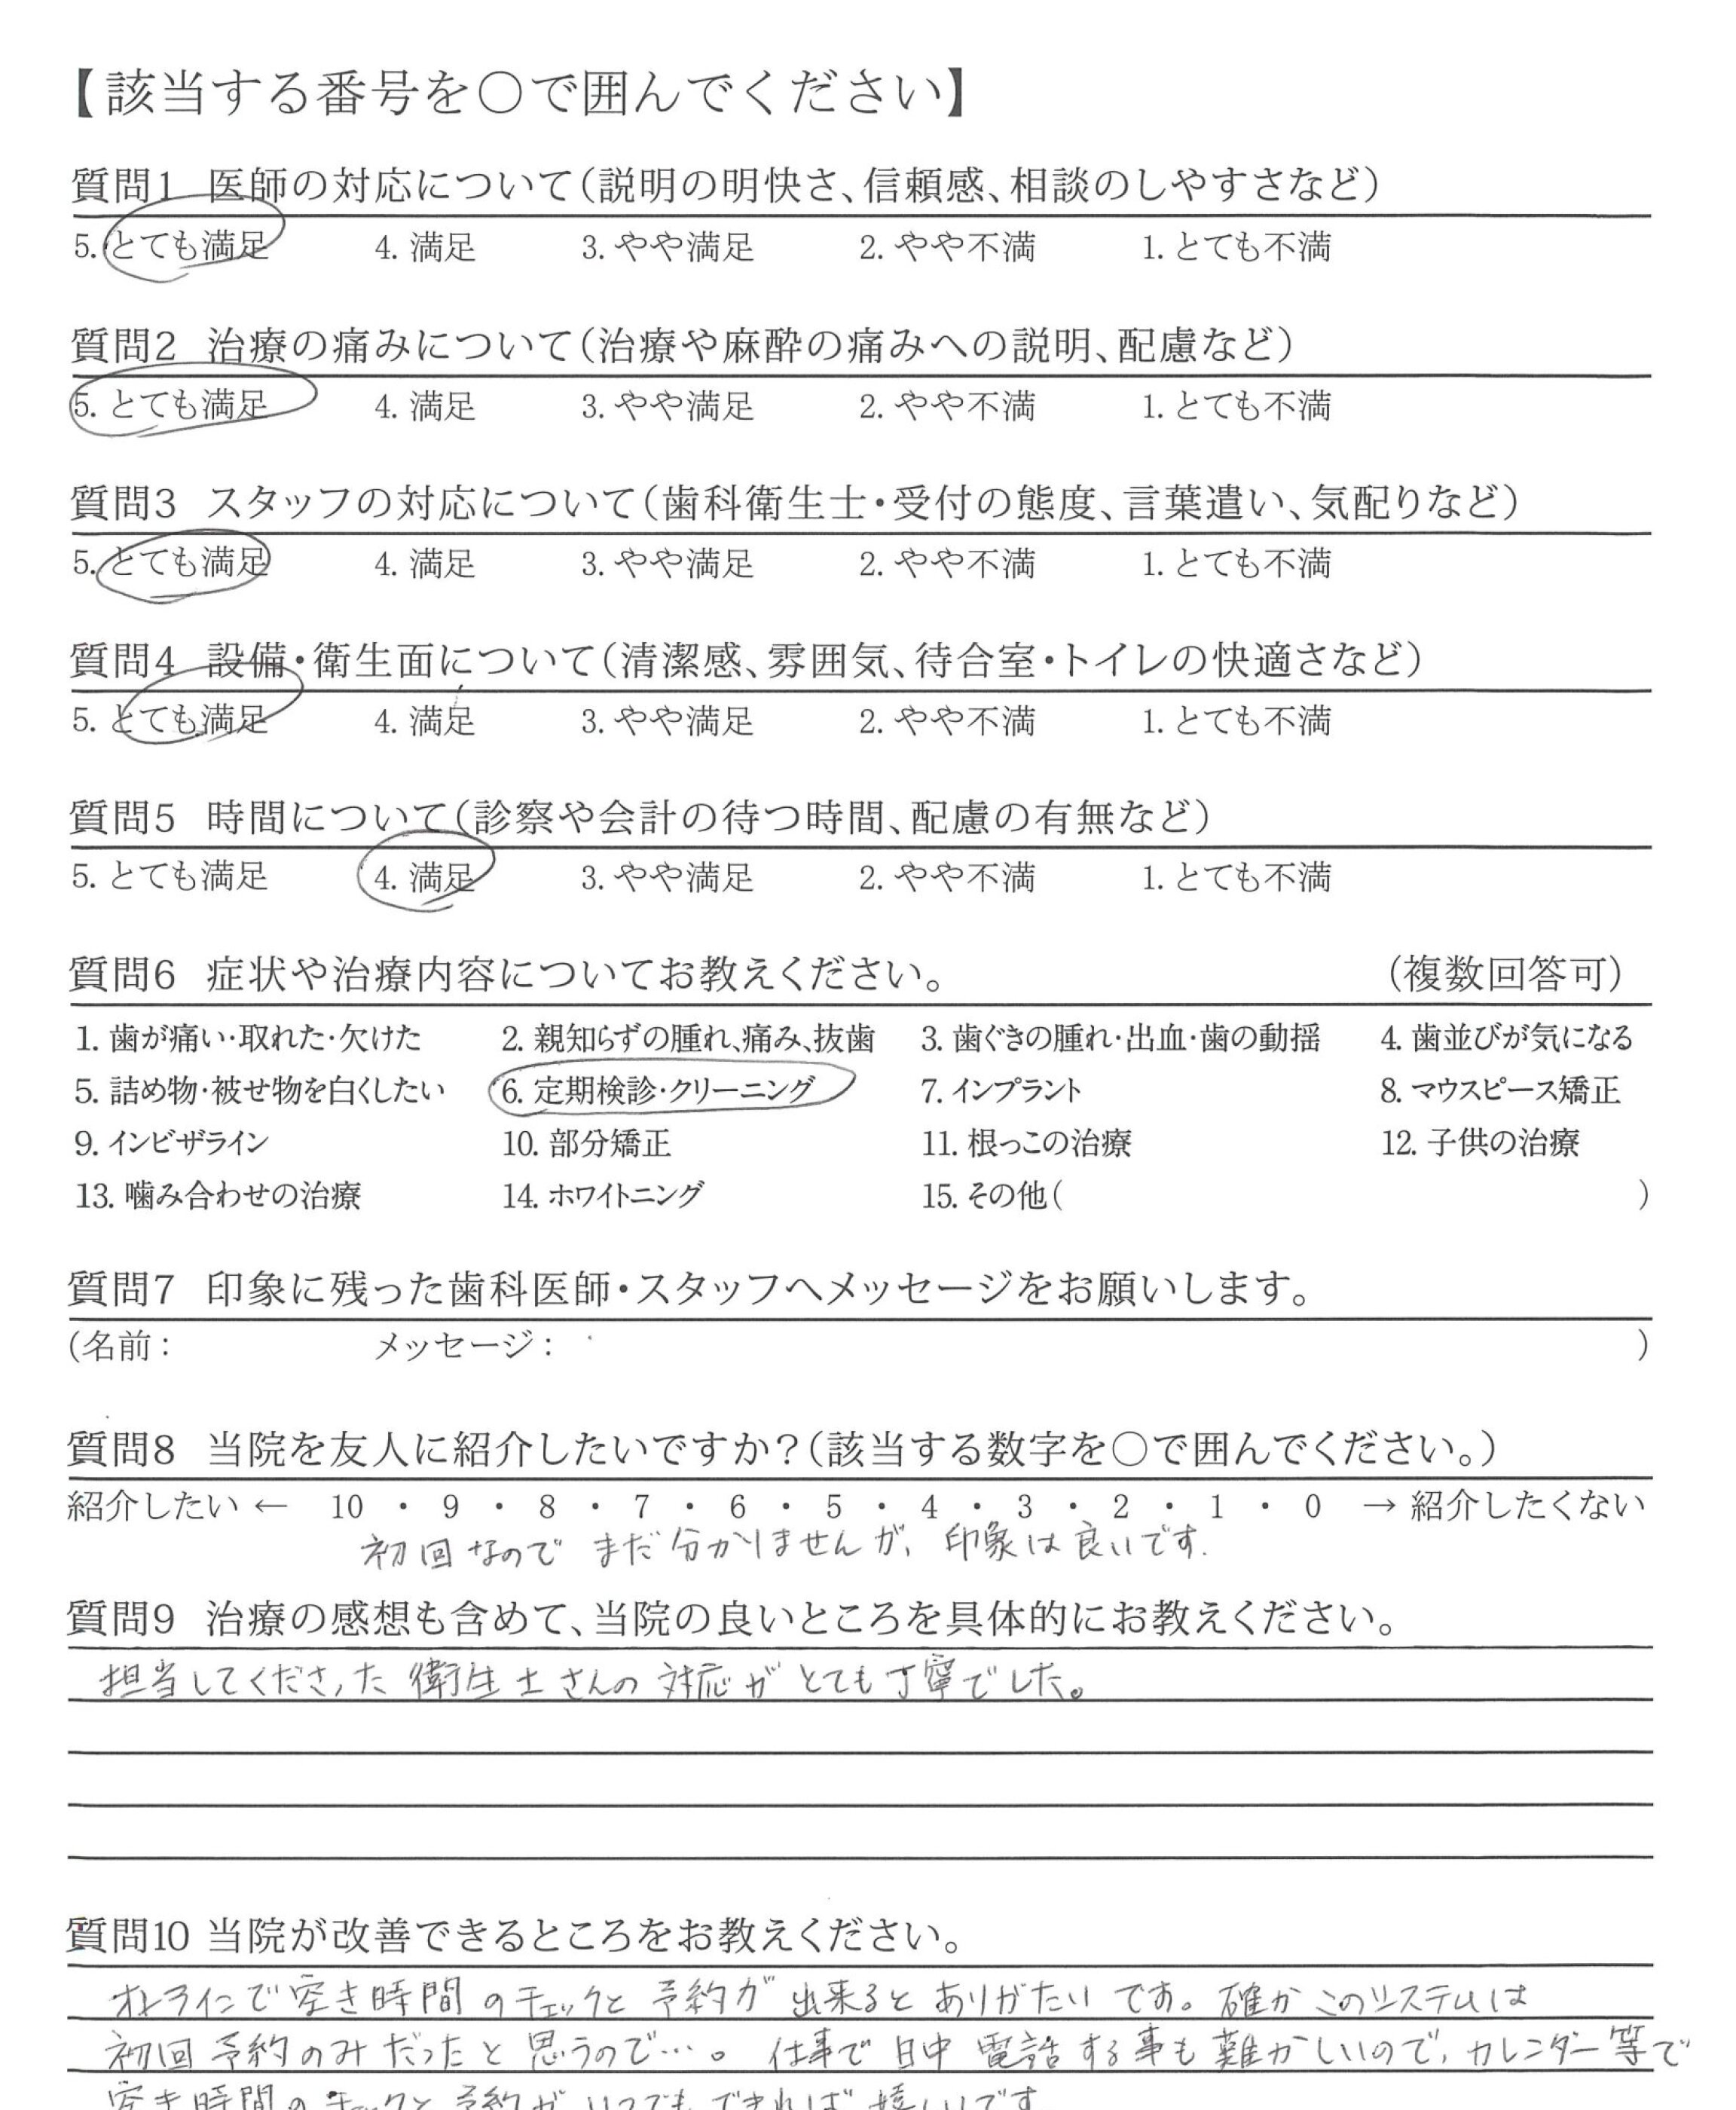 【該当する番号を○で囲んでください】
質問1 医師の対応について(説明の明快さ、信頼感、相談のしやすさなど)
5. とても満足 4. 満足 3. やや満足 2. やや不満 1. とても不満
質問2 治療の痛みについて(治療や麻酔の痛みへの説明、配慮など)
5. とても満足 4. 満足 3. やや満足 2. やや不満 1. とても不満
質問3 スタッフの対応について(歯科衛生士・受付の態度、言葉遣い、気配りなど)
5. とても満足 4. 満足 3. やや満足 2. やや不満 1. とても不満
質問4 設備・衛生面について(清潔感、雰囲気、待合室・トイレの快適さなど)
5. とても満足 4. 満足 3. やや満足 2. やや不満 1. とても不満
質問5 時間について(診察や会計の待つ時間、配慮の有無など)
5. とても満足 4. 満足 3. やや満足 2. やや不満 1. とても不満
質問6 症状や治療内容についてお教えください。 (複数回答可)
1. 歯が痛い・取れた・欠けた 2. 親知らずの腫れ、痛み、抜歯 3. 歯ぐきの腫れ・出血・歯の動揺 4. 歯並びが気になる
5. 詰め物・被せ物を白くしたい 6. 定期検診・クリーニング 7. インプラント 8. マウスピース矯正
9. インビザライン 10. 部分矯正 11. 根っこの治療 12. 子供の治療
13. 噛み合わせの治療 14. ホワイトニング 15. その他( )
質問7 印象に残った歯科医師・スタッフへメッセージをお願いします。
(名前: メッセージ: )
質問8 当院を友人に紹介したいですか?(該当する数字を○で囲んでください。)
紹介したい ← 10 ・ 9 ・ 8 ・ 7 ・ 6 ・ 5 ・ 4 ・ 3 ・ 2 ・ 1 ・ 0 → 紹介したくない
初回なので まだ分かりませんが、印象は良いです.
質問9 治療の感想も含めて、当院の良いところを具体的にお教えください。
担当してくださった 衛生士さんの 対応が とても丁寧でした。
質問10 当院が改善できるところをお教えください。
オンラインで空き時間のチェックと 予約が 出来ると ありがたい です。確か このシステムは
初回予約のみだったと 思うので…。 仕事で 日中 電話する事も 難かしいので、カレンダー等で
空き時間のチェックと 予約が いつでも できれば 嬉しいです.